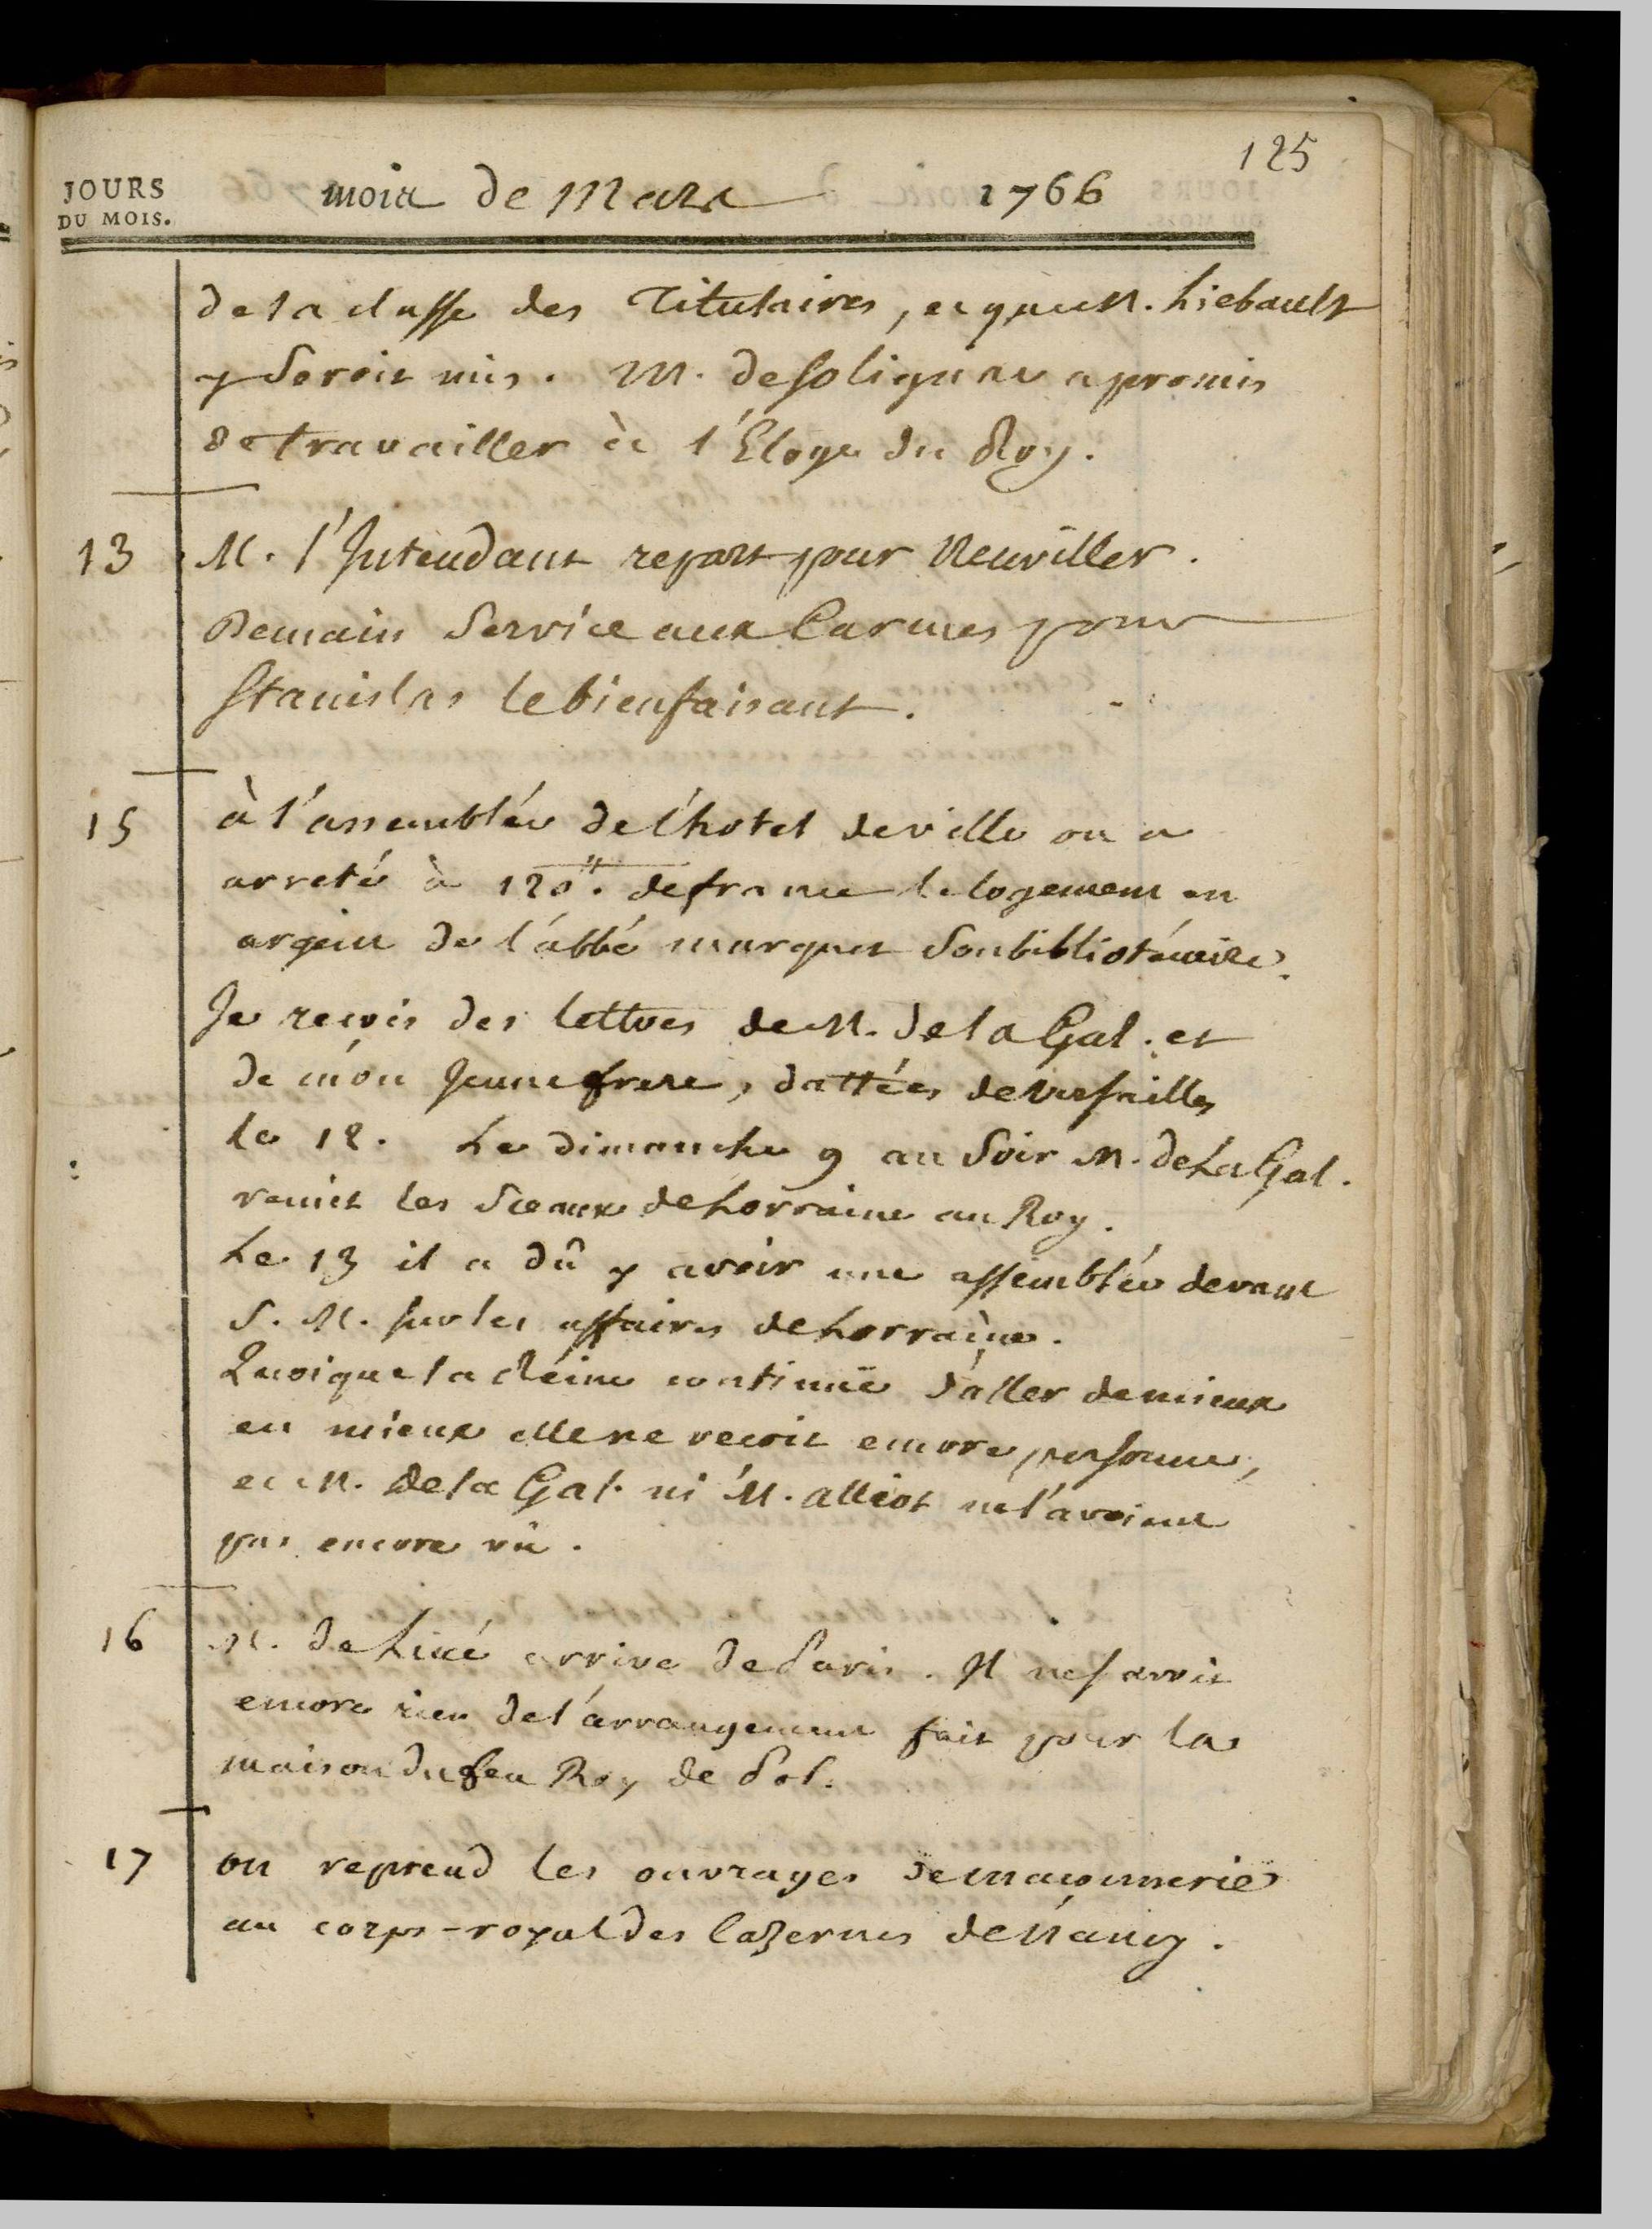 125
JOURS
DU MOIS.
mois de Mars 1766
de la classe des Titulaires, et que M. Liebault
y Seroit mis. M. de Solignac a promis
de travailler à l'Eloge du Roy.
13 M. l'Intendant repart pour Neuviller.
Demain Service aux Carmes pour
Stanislas le bienfaisant.
15 à l'assemblée de l'hotel de ville on a
arreté à 120tt. de france le logement en
argent de l'abbé marquet son bibliotécaire.
Je reçois des lettres de M. de la Gal. et
de mon Jeune frere, dattées de Versailles
le 12. Le dimanche 9 au Soir M. de La Gal.
remit les Sceaux de Lorraine au Roy.
Le 13 il a dû y avoir une assemblée devant
S. M. sur les affaires de Lorraine.
Quoique la Reine continuë d'aller de mieux
en mieux elle ne recoit encore personne,
et M. de la Gal. ni M. alliot ne l'avoient
pas encore vû.
16 M. de Lixé arrive de Paris. Il ne savoit
encore rien de l'arrangement fait pour la
maison du feu Roy de Pol.
17 on reprend les ouvrages de maçonnerie
au corps-royal des Cazernes de Nancy.